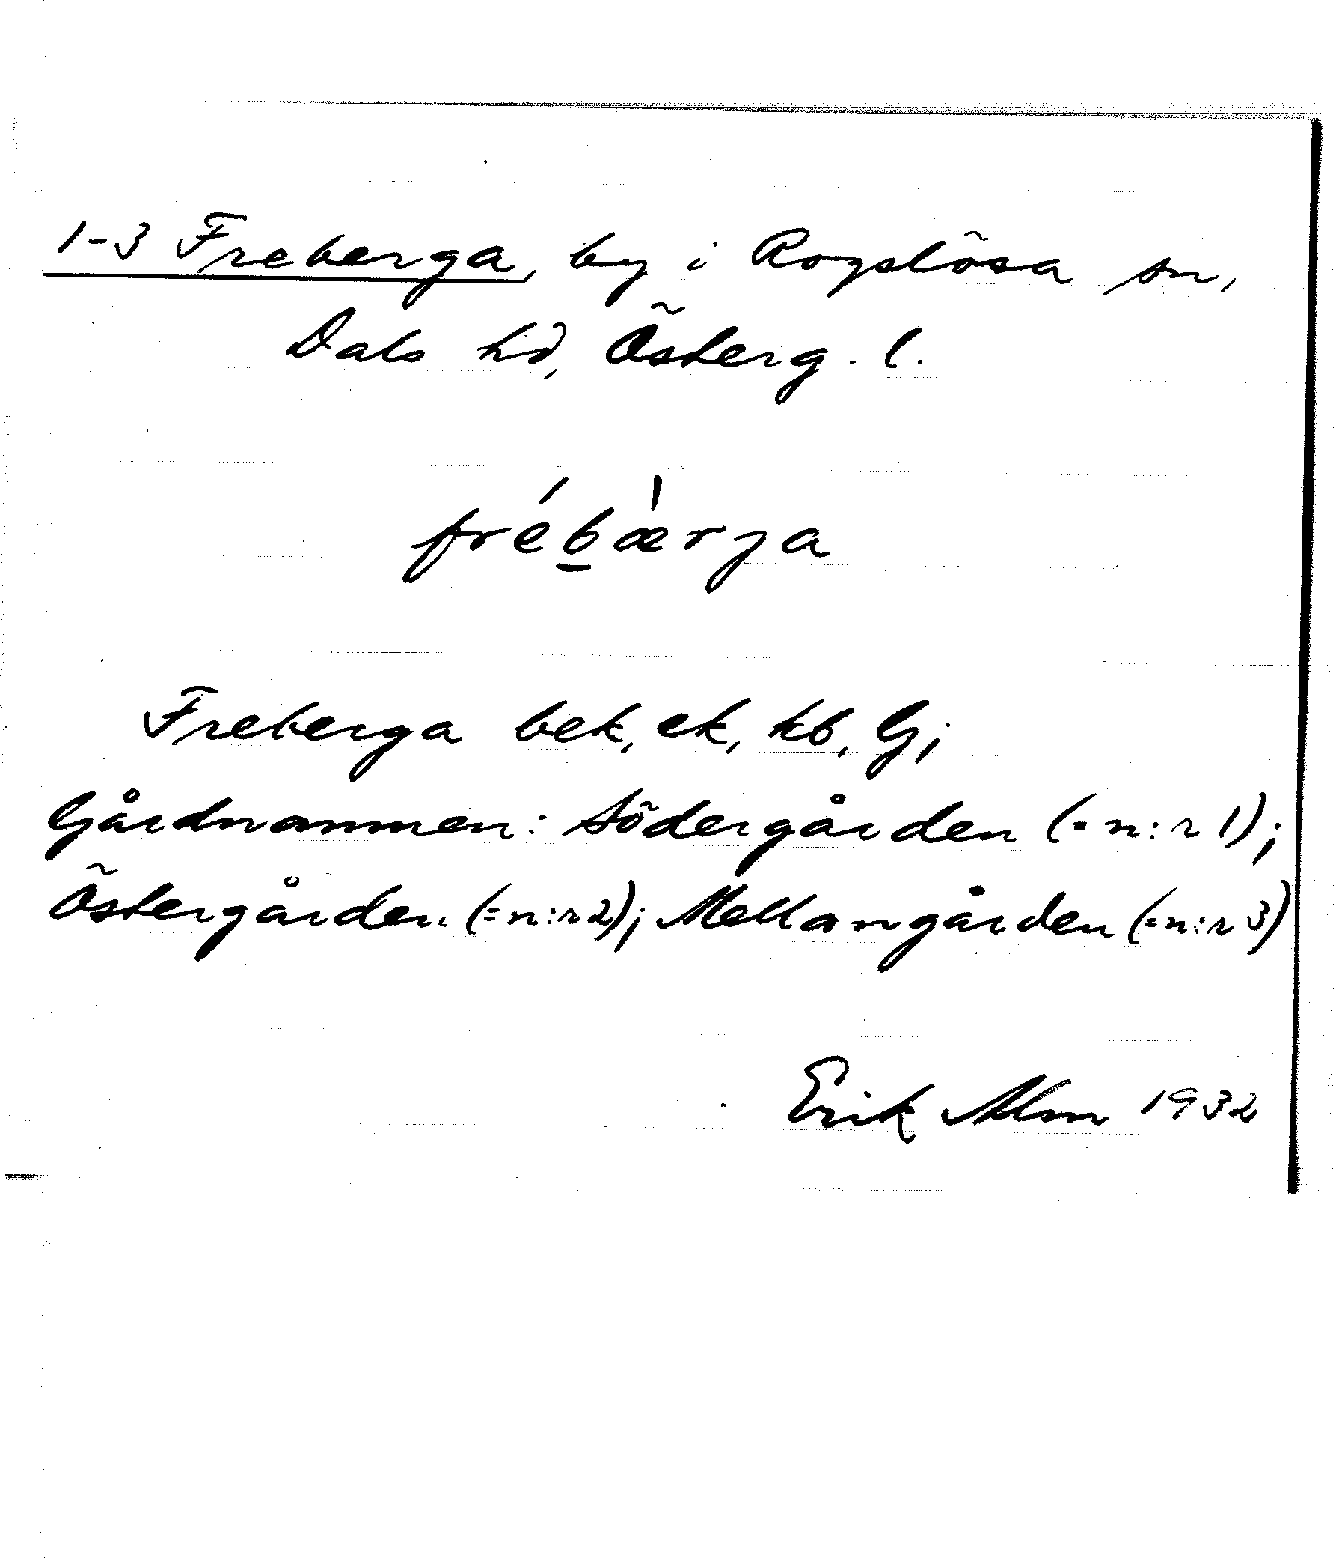 1-3 Freberga, by i Rogslösa sn,
Dals hd, Österg. l.
frébæ̀rja
Freberga bek, ek, kb, G;
Gårdnamnen: Södergården (= n:r 1);
Östergården (= n:r 2); Mellangården (= n:r 3)
Erik Alm 1932